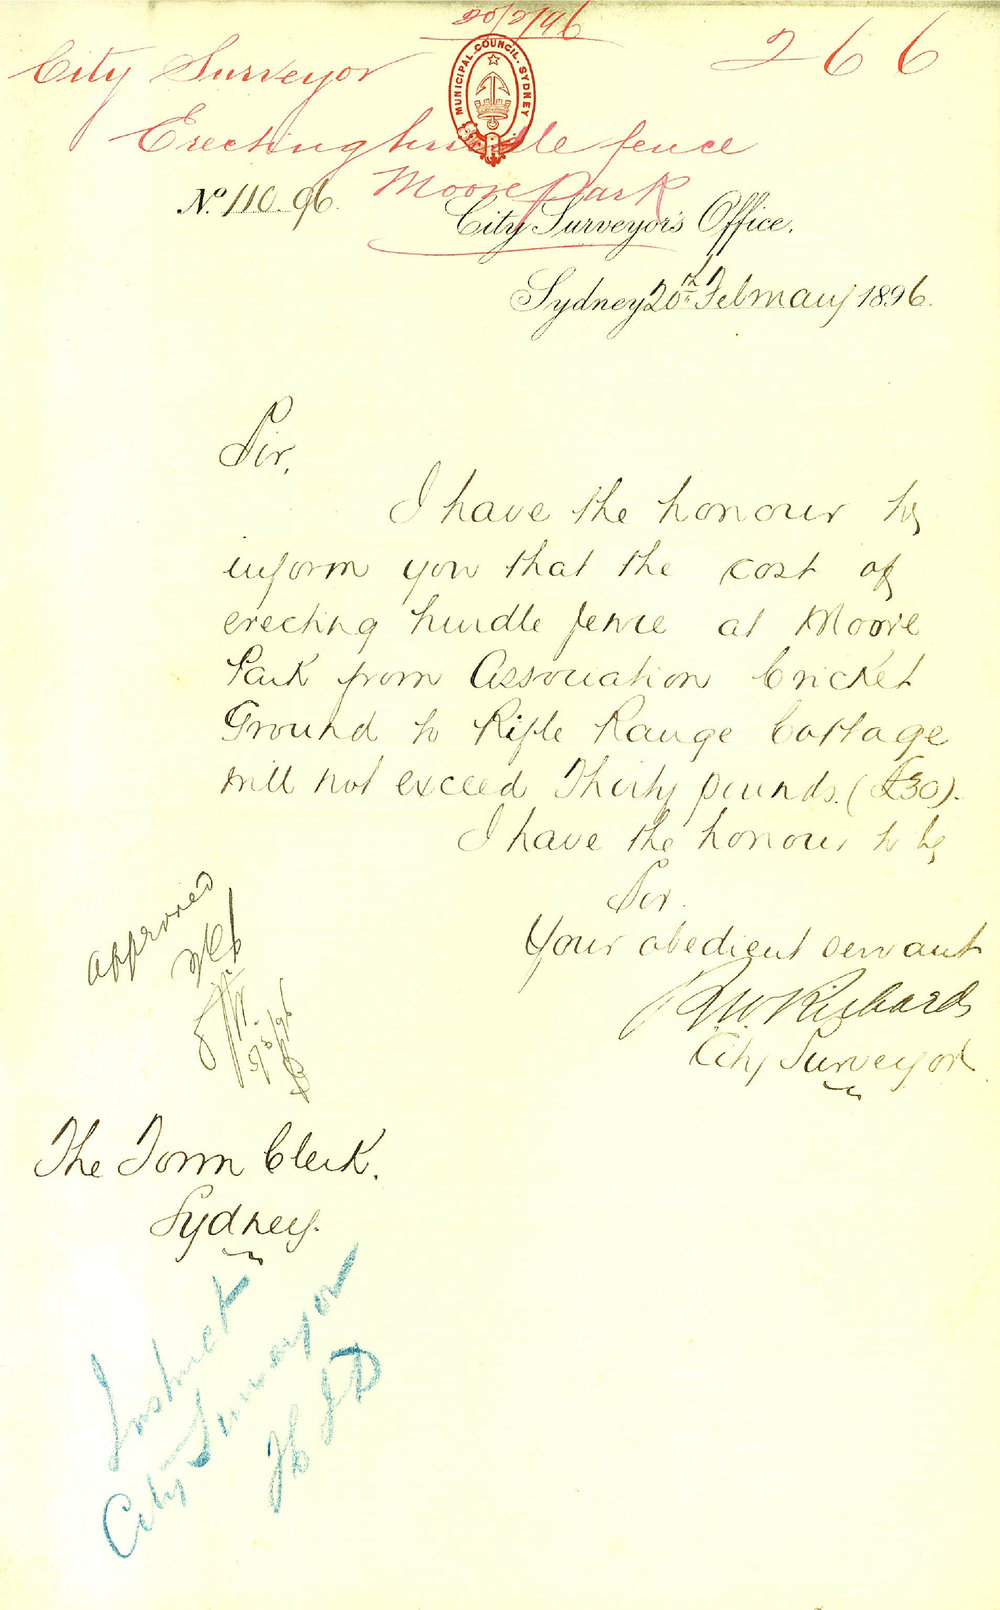 20/2/96
266
City Surveyor
MUNICIPAL COUNCIL. SYDNEY
Erecting hurdle fence
Moore Park
No. 110.96.
City Surveyor's Office.
Sydney 20th February 1896.
Sir,
I have the honour to
inform you that the cost of
erecting hurdle fence at Moore
Park from Association Cricket
Ground to Rifle Range Cottage
will not exceed Thirty pounds. (£30).
I have the honour to be
Sir.
Your obedient servant
R.W. Richards
City Surveyor
approved
The Town Clerk.
Sydney.
Instruct
City Surveyor